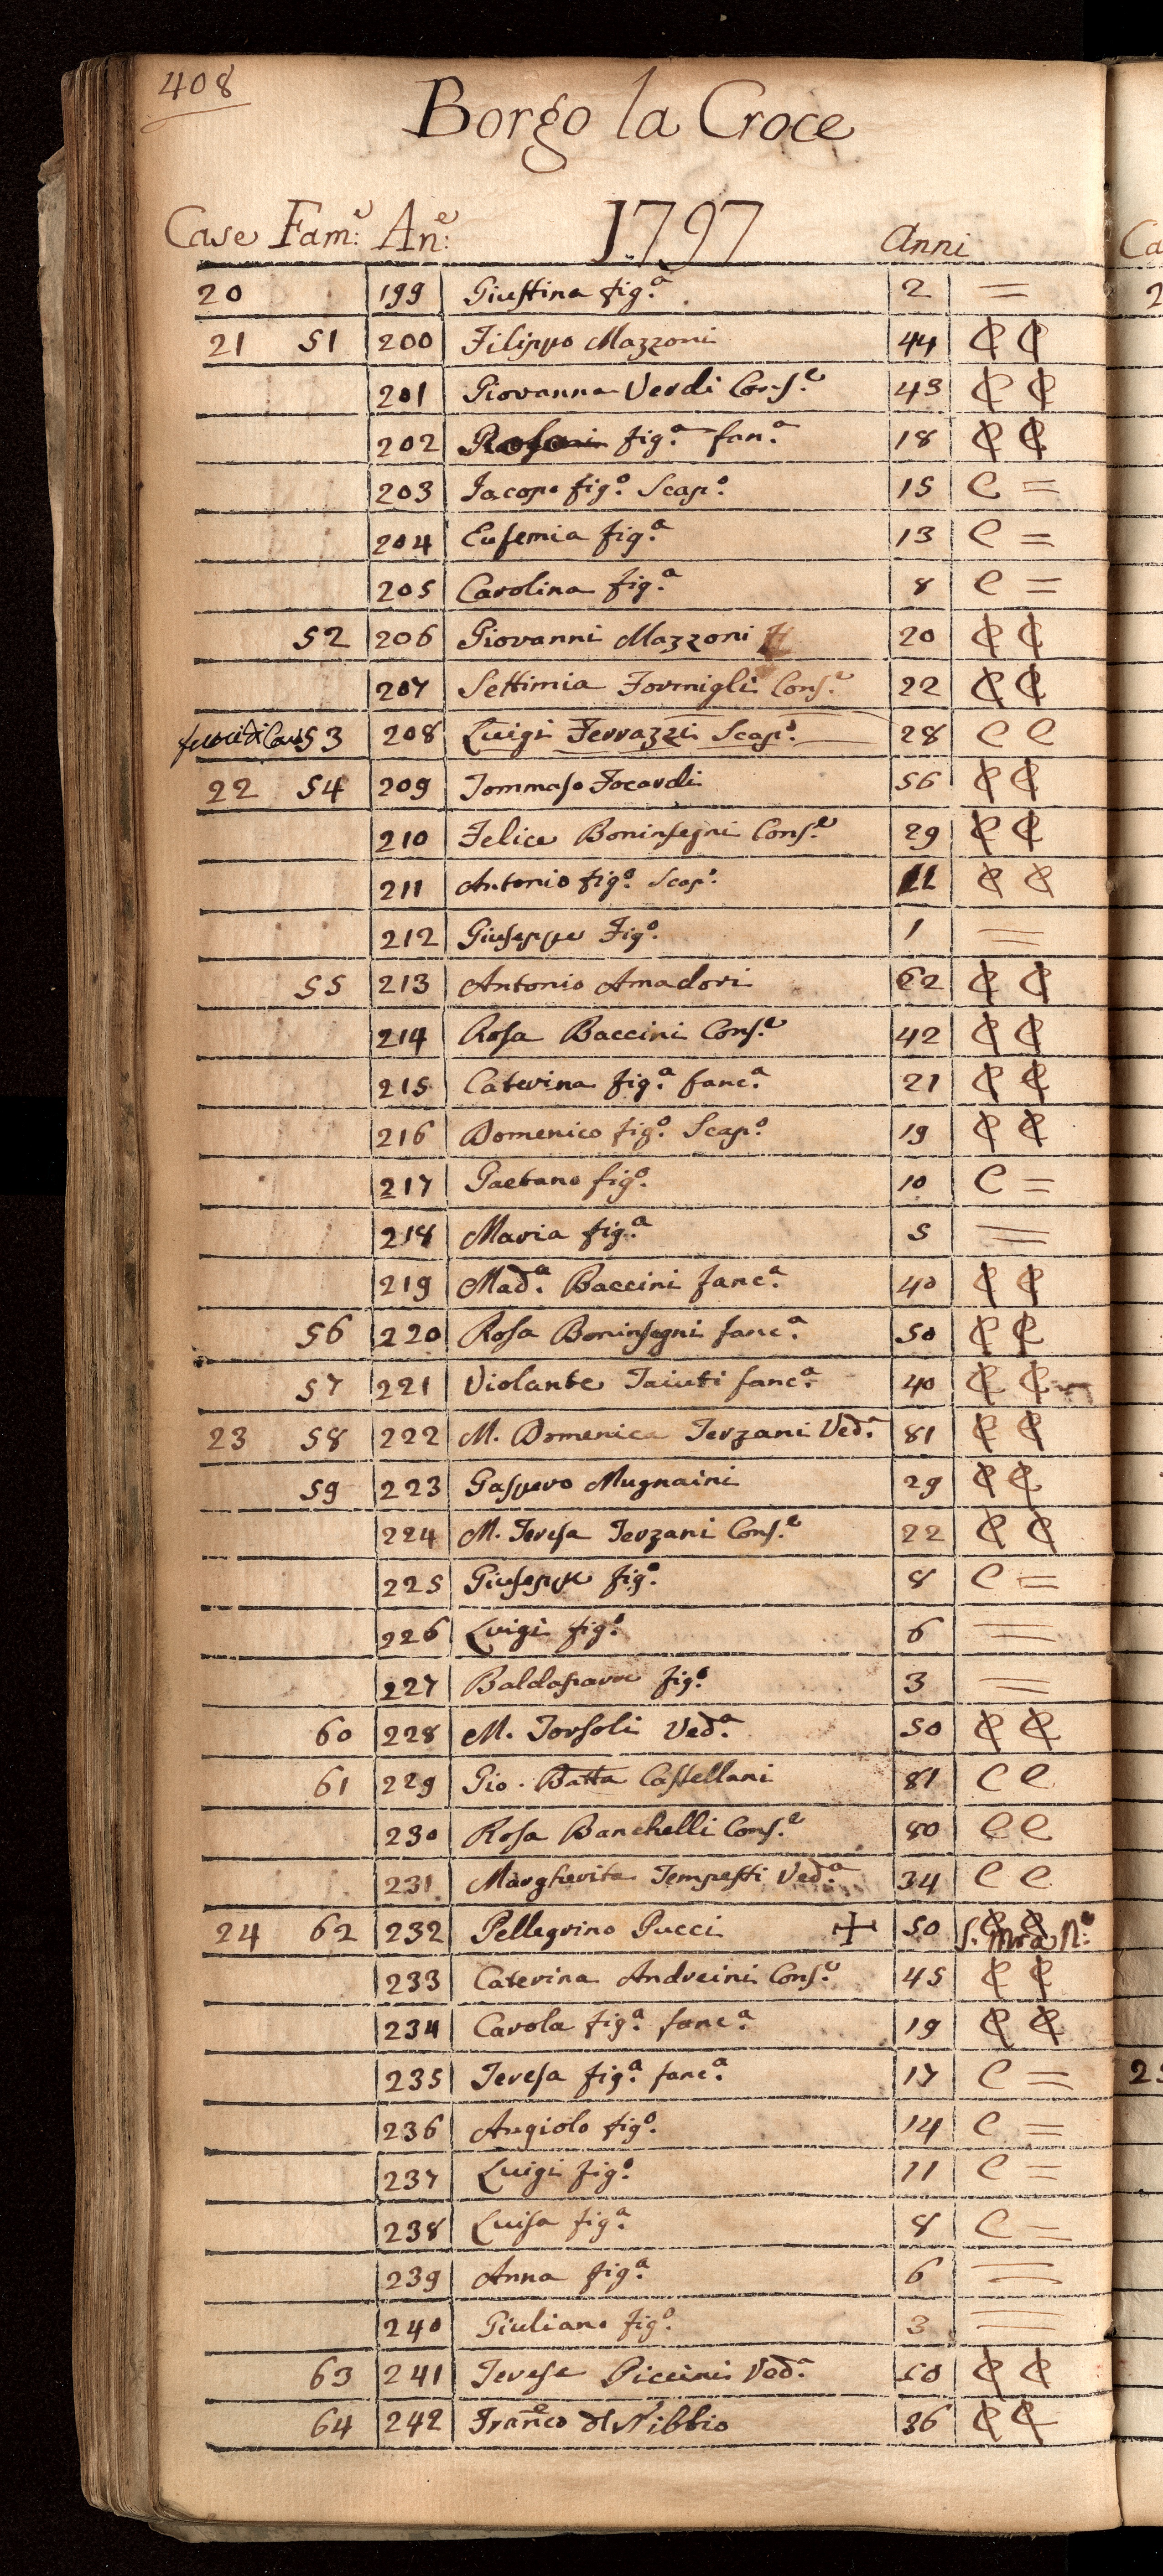 408
Borgo la Croce
Case Fam:e An:e 1797 Anni
20 199 Giustina fig.a 2 =
21 51 200 Filippo Mazzoni 44 C C
201 Giovanna Verdi Cons.e 43 C C
202 fig.a fan.a 18 C C
203 Jacopo fig.o Scap.o 15 C =
204 Eufemia fig.a 13 C =
205 Carolina fig.a 8 C =
52 206 Giovanni Mazzoni 20 C C
207 Settimia Formigli Cons.e 22 C C
53 208 Luigi Ferrazzi Scap.o 28 C C
22 54 209 Tommaso Focardi 56 C C
210 Felice Boninsegni Cons.e 29 C C
211 Antonio fig.o Scap.o C C
212 Giuseppe Fig.o 1 =
55 213 Antonio Amadori 62 C C
214 Rosa Baccini Cons.e 42 C C
215 Caterina fig.a fanc.a 21 C C
216 Domenico fig.o Scap.o 19 C C
217 Gaetano fig.o 10 C =
218 Maria fig.a 5 =
219 Mad.a Baccini fanc.a 40 C C
56 220 Rosa Boninsegni fanc.a 50 C C
57 221 Violante Taiuti fanc.a 40 C C
23 58 222 M. Domenica Terzani Ved.a 81 C C
59 223 Gaspero Mugnaini 29 C C
224 M. Teresa Terzani Cons.e 22 C C
225 Giuseppe fig.o 8 C =
226 Luigi fig.o 6 =
227 Baldassarre fig.o 3 =
60 228 M. Torsoli Ved.a 50 C C
61 229 Gio. Batta Castellani 81 C C
230 Rosa Banchelli Cons.e 80 C C
231 Margherita Tempesti Ved.a 34 C C
24 62 232 Pellegrino Pucci + 50 C C
233 Caterina Andreini Cons.e 45 C C
234 Carola fig.a fanc.a 19 C C
235 Teresa fig.a fanc.a 17 C =
236 Angiolo fig.o 14 C =
237 Luigi fig.o 11 C =
238 Luisa fig.a 8 C =
239 Anna fig.a 6 =
240 Giuliano fig.o 3 =
63 241 Teresa Piccini Ved.a 50 C C
64 242 Fran.co dl Nibbio 36 C C